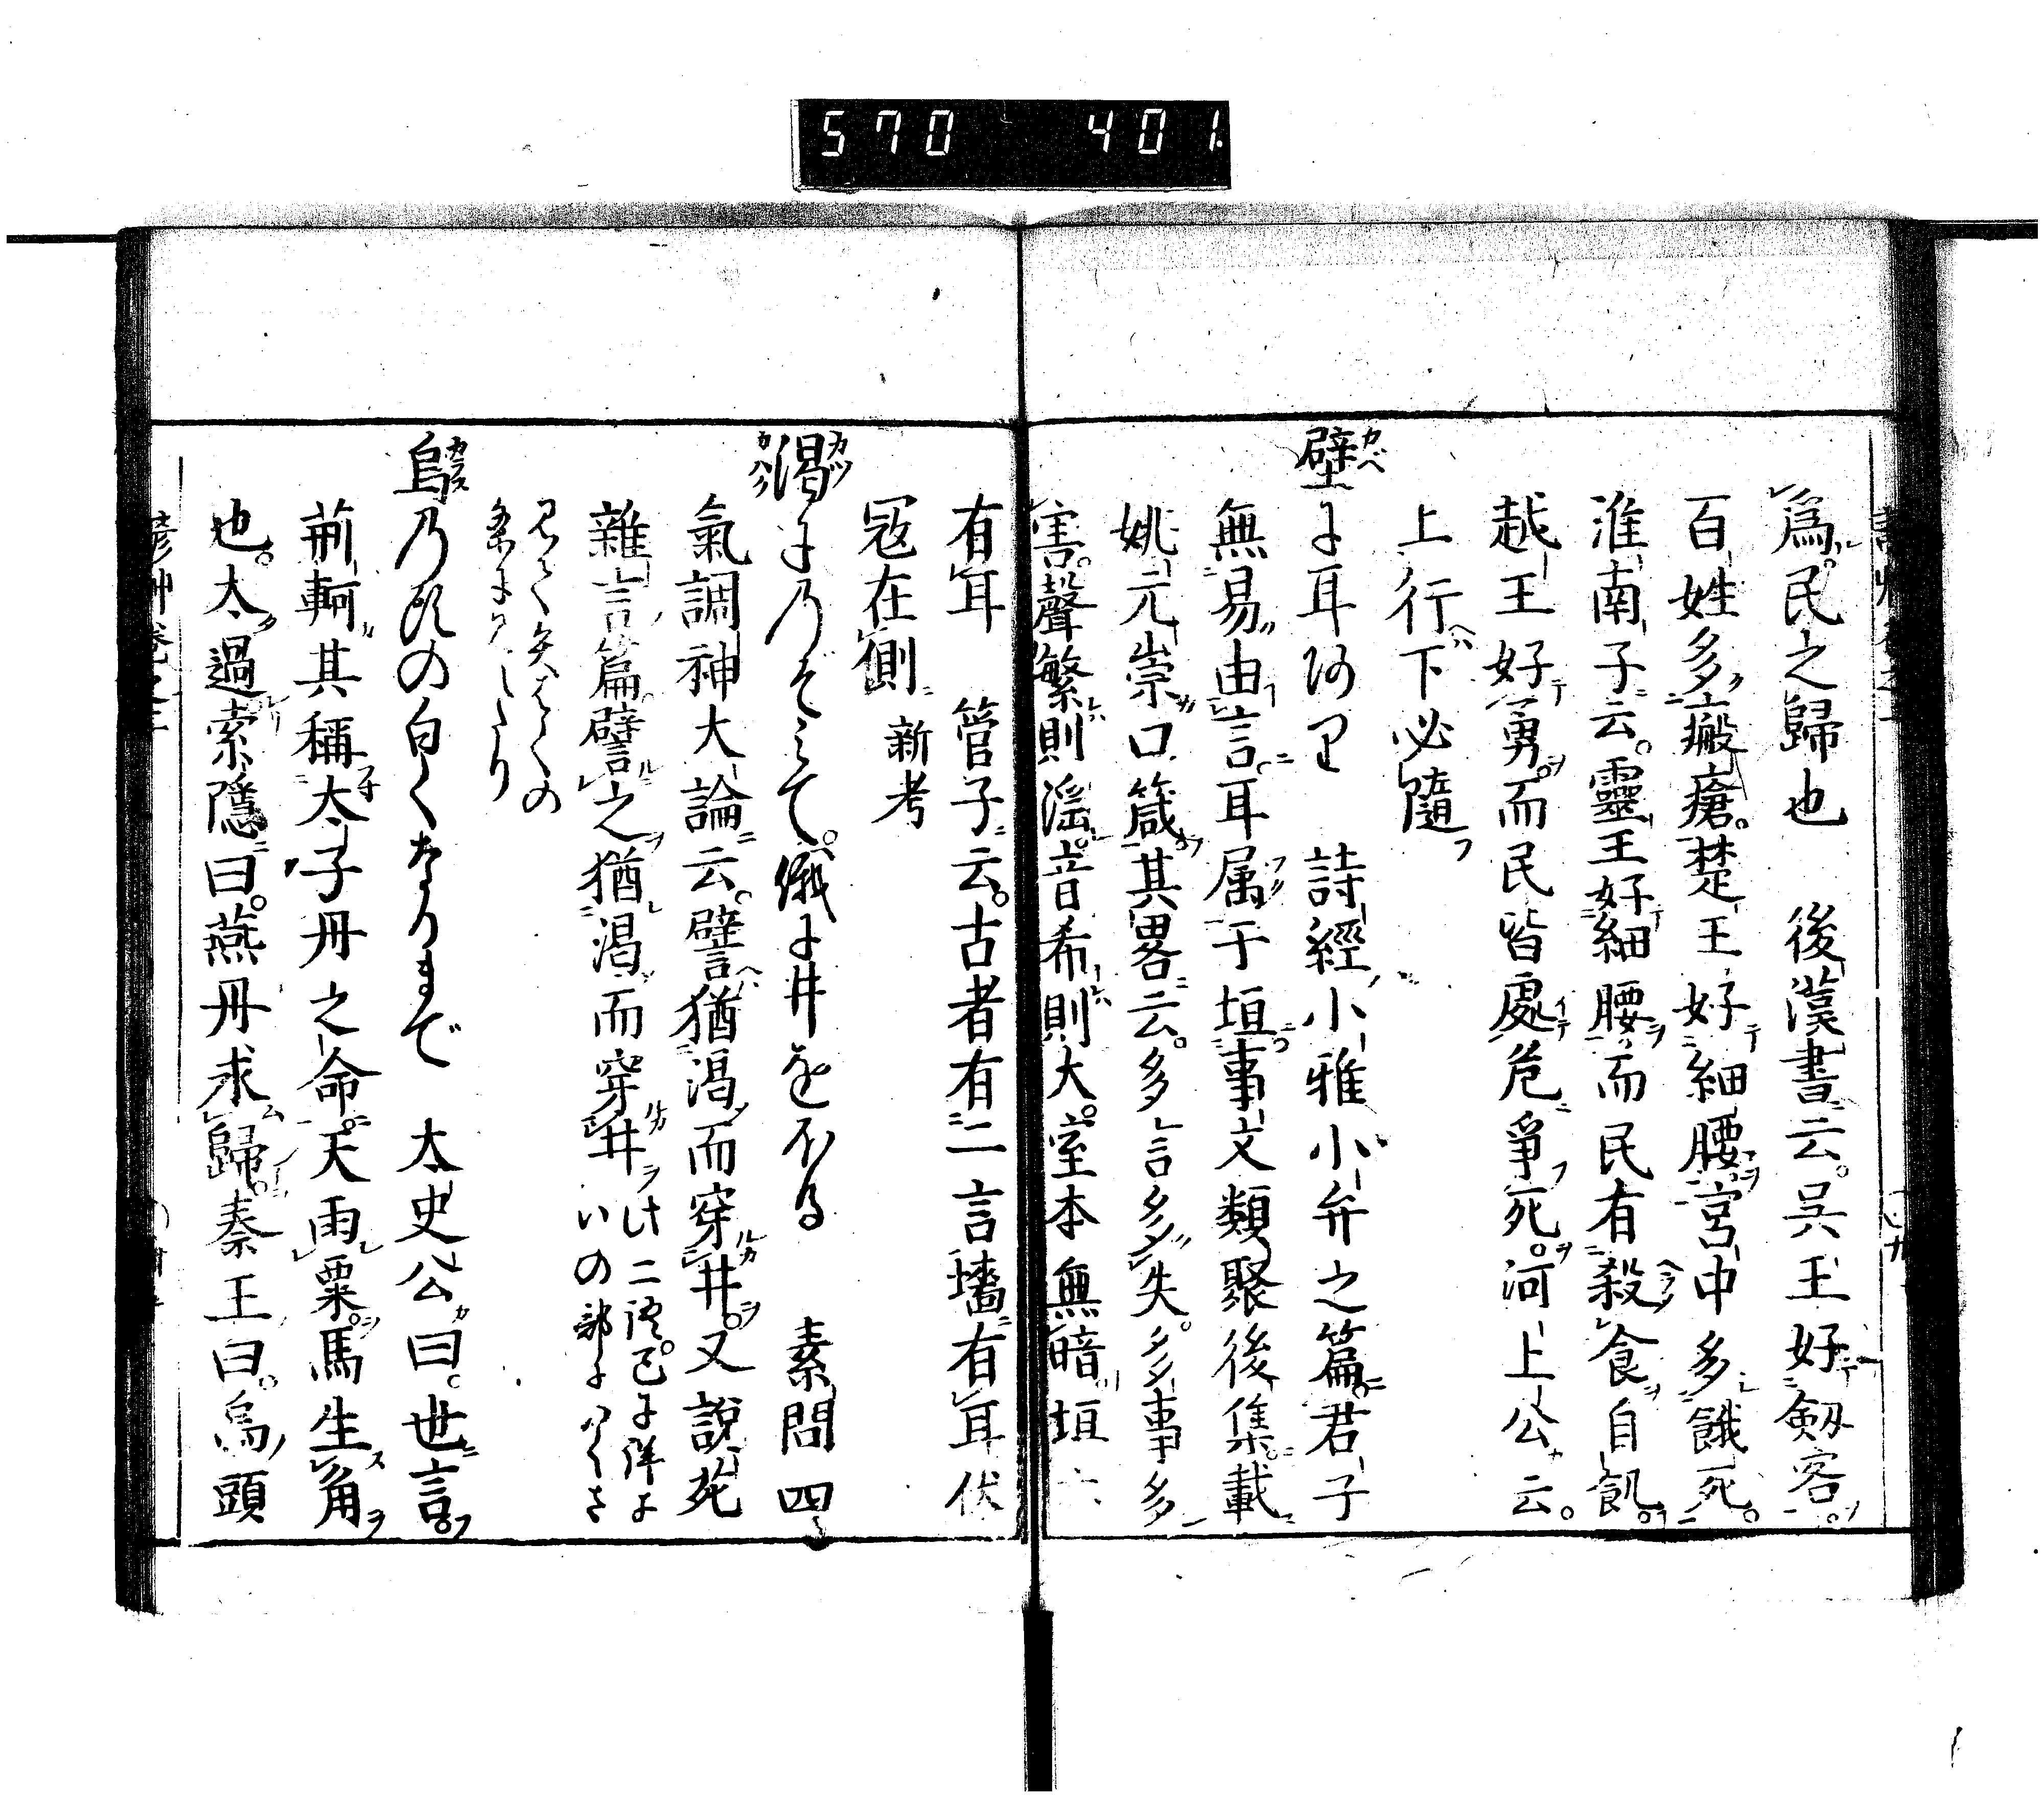 570 401.
爲民之歸也 後漢書云。呉王好劔客。
百姓多瘢瘡。楚王好細腰。宮中多餓死。
淮南子云。靈王好細腰而民有殺食自飢。
越王好勇。而民皆處危爭死。河上公云。
上行下必隨
壁に耳あり 詩經小雅小弁之篇。君子
無易由言。耳属于垣。事文類聚後集。載
姚元崇口箴其畧云。多言多失。多事多
害。聲繁則淫。音希則大。室本無暗。垣
有耳 管子云。古者有二言。墻有耳伏
冦在側 新考
渇にのぞみて。俄に井をほる 素問四
氣調神大論云。譬猶渇而穿井。又說苑
雜言篇譬之猶渇而穿井 此二語。已に洋に
いの部に
烏乃頭の白くなりまで 太史公曰。世言
荊軻其稱太子丹之命。天雨粟。馬生角
也。太過索隱曰。燕丹求歸。秦王曰。烏頭